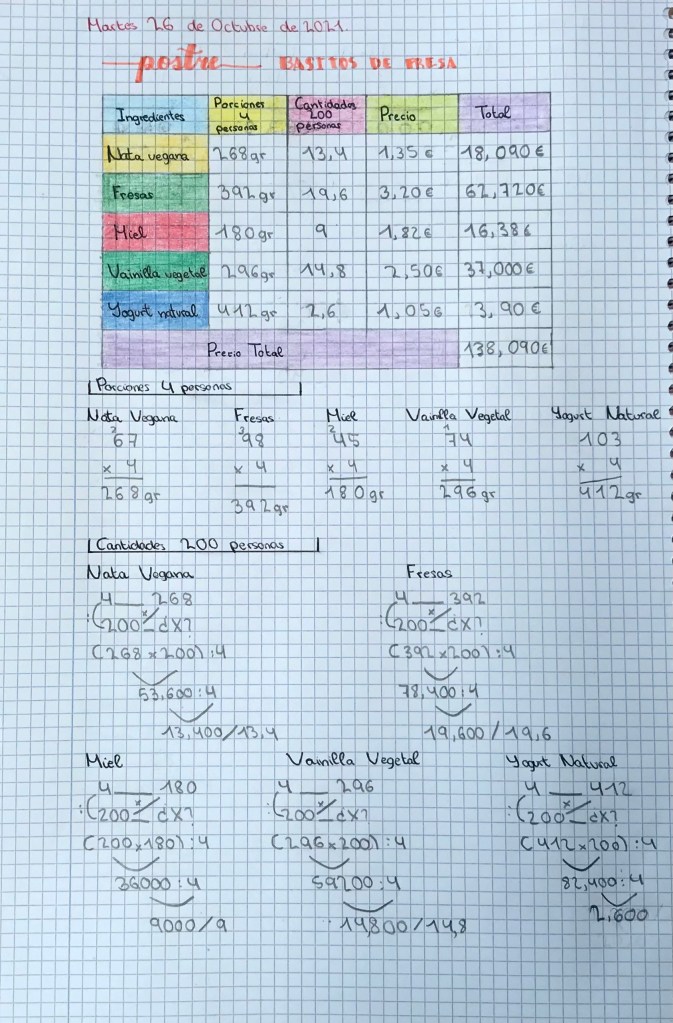 Martes 26 de Octubre de 2021.
postre BASITOS DE FRESA
Ingredientes Porciones 4 personas Cantidades 200 personas Precio Total
Nata vegana 268gr 13,4 1,35 € 18,090 €
Fresas 392gr 19,6 3,20€ 62,720€
Miel 180gr 9 1,82€ 16,38€
Vainilla vegetal 296gr 14,8 2,50€ 37,000€
Yogurt natural 412gr 2,6 1,05€ 3,90€
Precio Total 138,090€
Porciones 4 personas
Nata Vegana Fresas Miel Vainilla Vegetal Yogurt Natural
2 3 2 1
67 98 45 74 103
x 4 x 4 x 4 x 4 x 4
268gr 392gr 180gr 296gr 412gr
Cantidades 200 personas
Nata Vegana Fresas
4 __ 268 4 __ 392
:(200 x dX? :(200 x dX?
(268x200):4 (392x200):4
53.600:4 78,400:4
13,400/13,4 19,600/19,6
Miel Vainilla Vegetal Yogurt Natural
4 __ 180 4 __ 296 4 __ 412
:(200 x dX? :(200 x dX? :(200 x dX?
(200x180):4 (296x200):4 (412x200):4
36000:4 59200:4 82,400:4
9000/9 14,800/14,8 2,600